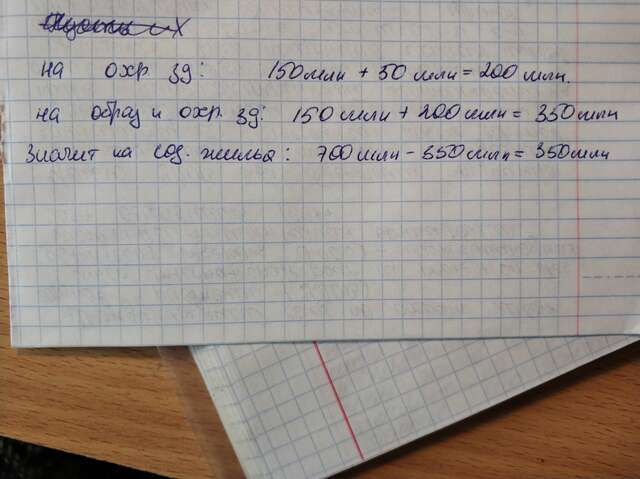 на охр. зд: 150 млн + 50 млн = 200 млн.
на образ и охр. зд: 150 млн + 200 млн = 350 млн
Значит на соз. жилья: 700 млн - 350 млн = 350 млн